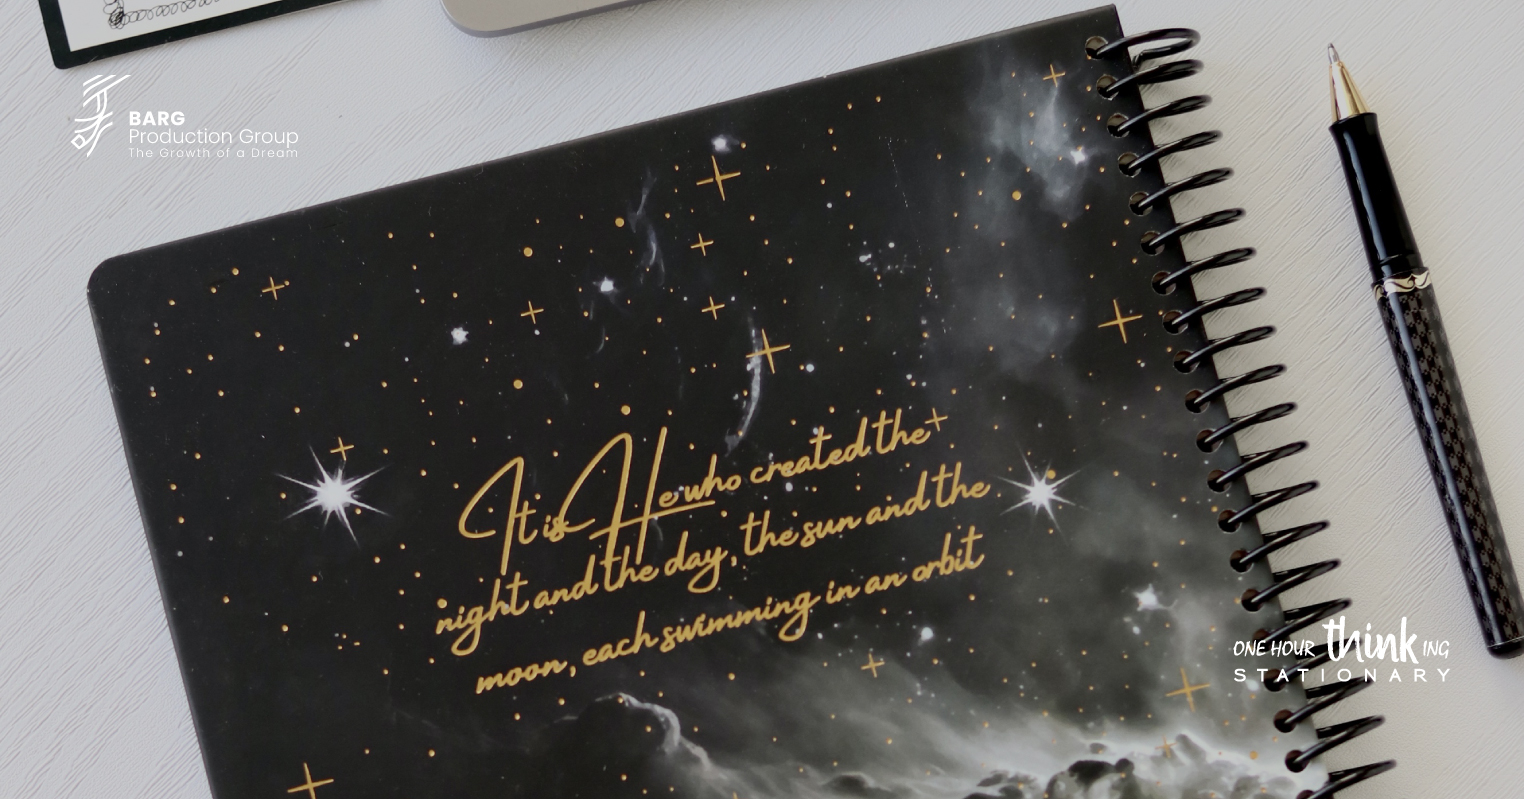 BARG
Production Group
The Growth of a Dream
It is He who created the
night and the day, the sun and the
moon, each swimming in an orbit
ONE HOUR thinkING
STATIONARY